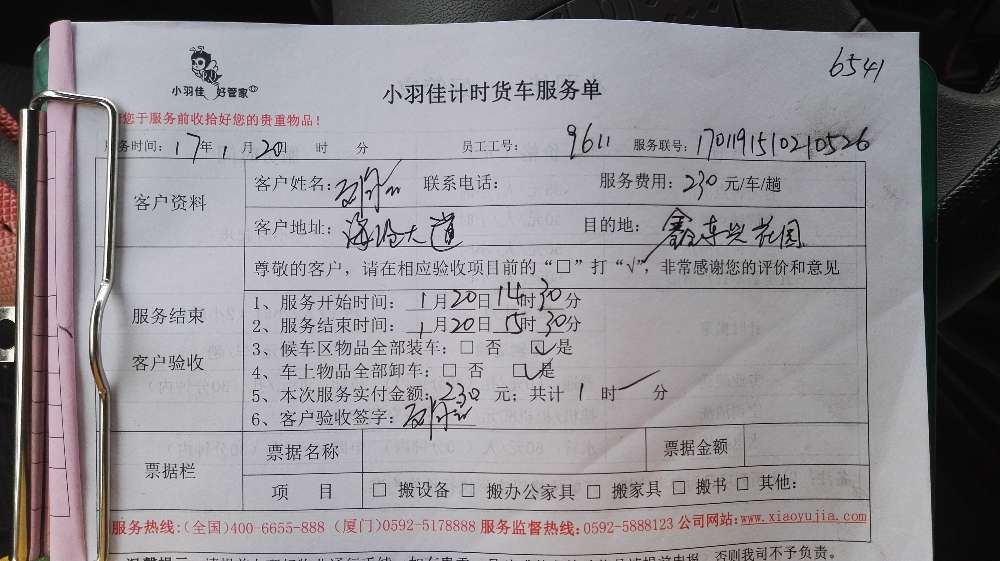 6541
小羽佳 好管家
小羽佳计时货车服务单
您于服务前收拾好您的贵重物品！
服务时间：17年1月20日 时 分 员工工号： 9611 服务联号：170119151021 0526
客户资料
客户姓名： 联系电话： 服务费用：230 元/车/趟
客户地址：海沧大道 目的地：鑫东兴花园
尊敬的客户，请在相应验收项目前的“□”打“√”，非常感谢您的评价和意见
服务结束
客户验收
1、服务开始时间：1月20日14时30分
2、服务结束时间：1月20日15时30分
3、候车区物品全部装车：□ 否 □是
4、车上物品全部卸车：□ 否 □是
5、本次服务实付金额：230 元；共计 1 时 分
6、客户验收签字：
票据栏
票据名称 票据金额
项 目 □ 搬设备 □ 搬办公家具 □ 搬家具 □ 搬书 □ 其他：
服务热线：(全国)400-6655-888 (厦门)0592-5178888 服务监督热线：0592-5888123 公司网站：www.xiaoyujia.com
否则我司不予负责。